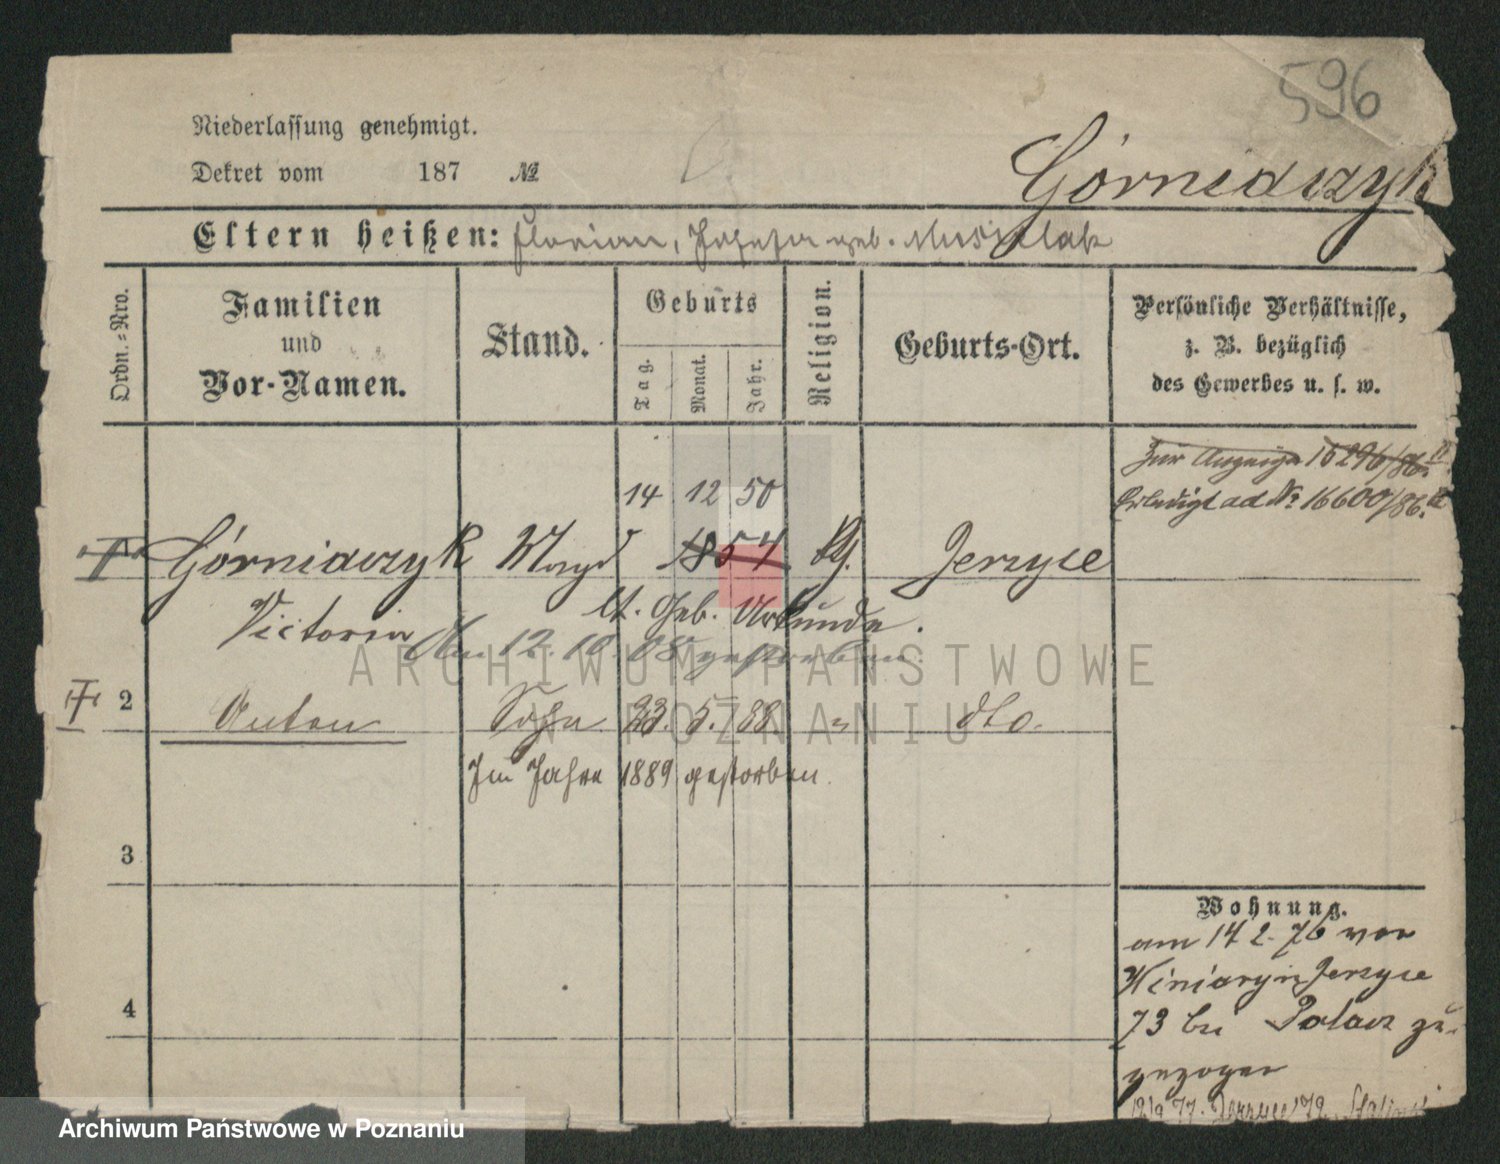 596
Niederlassung genehmigt.
Dekret vom 187 №
Górniaczyk
Eltern heißen: Florian, Josefa geb.
Ordn.-Nro.
Familien
und
Vor-Namen.
Stand.
Geburts
Tag.
Monat.
Jahr.
Religion.
Geburts-Ort.
Persönliche Verhältnisse,
z. B. bezüglich
des Gewerbes u. s. w.
Zur Anzeige 16296/86 II
Erledigt ad № 16600/86. II
14 12 50
Górniaczyk Magd 1854 Jerzyce
Victoria lt. Geb. Urkunde.
Am 12.10.08 gestorben.
2 Anton Sohn 23. 5. 88. " dto.
Im Jahre 1889 gestorben.
3
4
Wohnung.
am 14 2. 76 von
Winiary n Jerzyce
73 bei Polacz zu-
gezogen
77. Jerzyce
ARCHIWUM PAŃSTWOWE
W POZNANIU
Archiwum Państwowe w Poznaniu